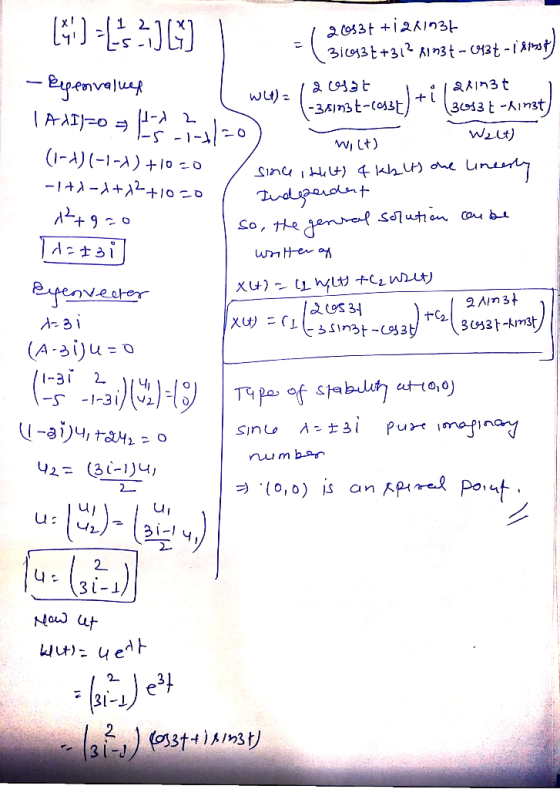 [x' y'] = [1 2 -5 -1] [x y]
- Eigenvalues
|A-λI|=0 ⇒ |1-λ 2 -5 -1-λ| = 0
(1-λ)(-1-λ)+10=0
-1+λ-λ+λ²+10=0
λ²+9=0
λ=±3i
Eigenvector
λ=3i
(A-3i)u=0
(1-3i 2 -5 -1-3i)(u1 u2)=(0 0)
(1-3i)u1+2u2=0
u2=(3i-1)u1/2
u=(u1 u2)=(u1 3i-1/2 u1)
u=(2 3i-1)
Now let
W(t)=ue^λt
=(2 3i-1)e^3t
=(2 3i-1)(cos3t+isin3t)
=(2cos3t+i2sin3t 3icos3t+3i²sin3t-cos3t-isin3t)
W(t)=(2cos3t -3sin3t-cos3t)+i(2sin3t 3cos3t-sin3t)
W1(t) W2(t)
Since, W1(t) & W2(t) are linearly
Independent
So, the genral solution can be
written as
X(t)=C1W1(t)+C2W2(t)
X(t)=C1(2cos3t -3sin3t-cos3t)+C2(2sin3t 3cos3t-sin3t)
Type of stability at (0,0)
since λ=±3i pure imaginary
number
⇒ (0,0) is an spiral point.